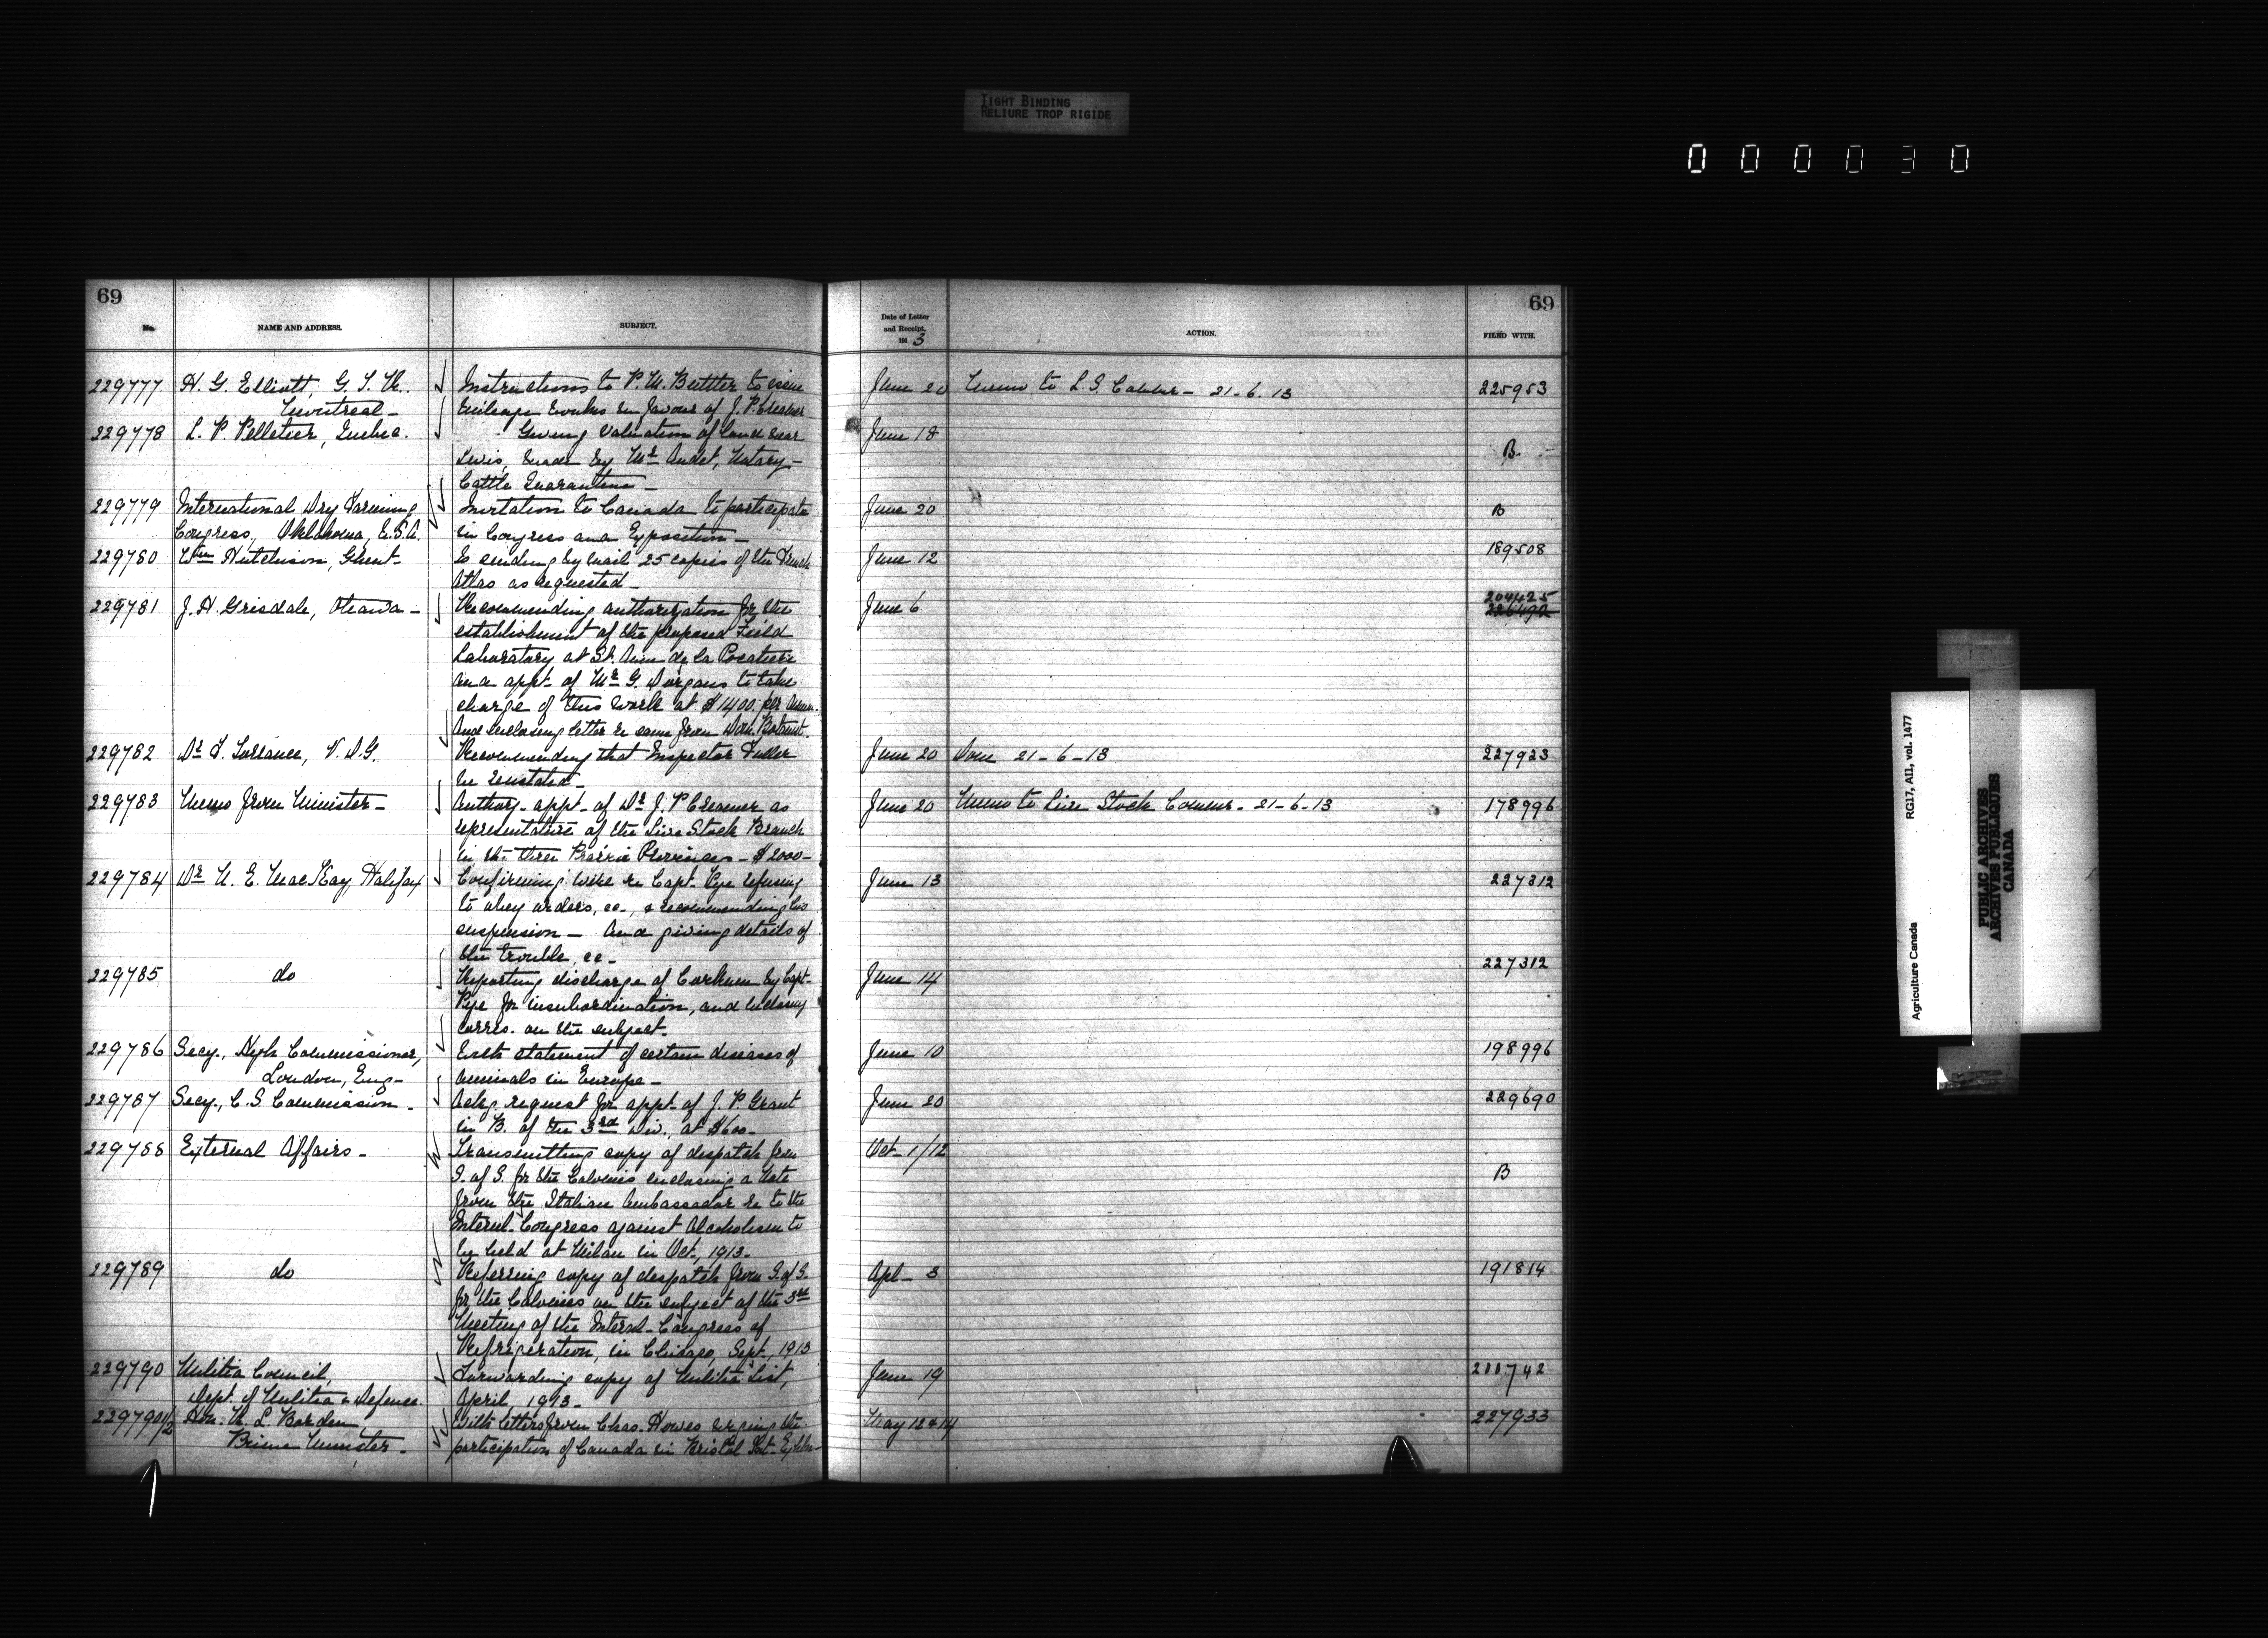 TIGHT BINDING
RELIURE TROP RIGIDE
000030
69
No. NAME AND ADDRESS. SUBJECT.
229777 H. G. Elliott, G. T. R. Instructions to P. W. to issue
Montreal - in favour of J. P. Creamer
229778 L. P. Pelletier, Quebec. Giving valuation of land near
Levis, made by Mr Audet, Notary -
Cattle Quarantine -
229779 International Dry Farming Invitation to Canada to participate
Congress, Oklahoma, U.S.A. in Congress and Exposition -
229780 Wm Hutchison, Ghent - Is sending by mail 25 copies of the French
Atlas as requested -
229781 J. H. Grisdale, Ottawa - Recommending authorization for the
establishment of the proposed Field
Laboratory at St. Anne de la Pocatiere
and appt. of Mr G. to take
charge of this work at $1400. per annum.
And enclosing letter re same from Dom. Botanist.
229782 Dr F. Torrance, V. D. G. Recommending that Inspector Fuller
be reinstated -
229783 Memo from Minister - Authory. appt. of Dr J. P. Creamer as
representative of the Live Stock Branch
in the three Prairie Provinces - $2000 -
229784 Dr N. E. MacKay, Halifax Confirming wire re Capt. Pye refusing
to obey orders, &c., & recommending his
suspension - And giving details of
the trouble, &c -
229785 do Reporting discharge of by Capt.
Pye for insubordination, and enclosing
corres. on the subject -
229786 Secy., High Commissioner, With statement of certain diseases of
London, Eng - animals in Europe -
229787 Secy., C. S. Commission. Ackg. request for appt. of J. P. Grant
in B. of the 3rd Div., at $600 -
229788 External Affairs - Transmitting copy of despatch from
S. of S. for the Colonies enclosing a Note
from the Italian Ambassador re to the
Internl. Congress against Alcoholism to
be held at Milan in Oct., 1913 -
229789 do Referring copy of despatch from S. of S.
for the Colonies on the subject of the 3rd
Meeting of the Internl. Congress of
Refrigeration, in Chicago, Sept., 1913
229790 Militia Council, Forwarding copy of Militia List,
Dept. of Militia & Defence. April, 1913 -
229790 1/2 Hon. R. L. Borden With letters from Chas. Howes urging the
Prime Minister - participation of Canada in Bristol Int.
69
Date of Letter
and Receipt,
191 3 ACTION. FILED WITH.
June 20 Memo to L. S. - 21-6-13 225953
June 18 B.
June 20 B
June 12 189508
June 6 204425
226492
June 20 Done 21-6-13 227923
June 20 Memo to Live Stock Commr. - 21-6-13 178996
June 13 227312
June 14 227312
June 10 198996
June 20 229690
Oct 1/12 B
Apl - 3 191814
June 19 200742
May 12 & 14 227933
Agriculture Canada RG17, A11, vol. 1477
PUBLIC ARCHIVES
ARCHIVES PUBLIQUES
CANADA